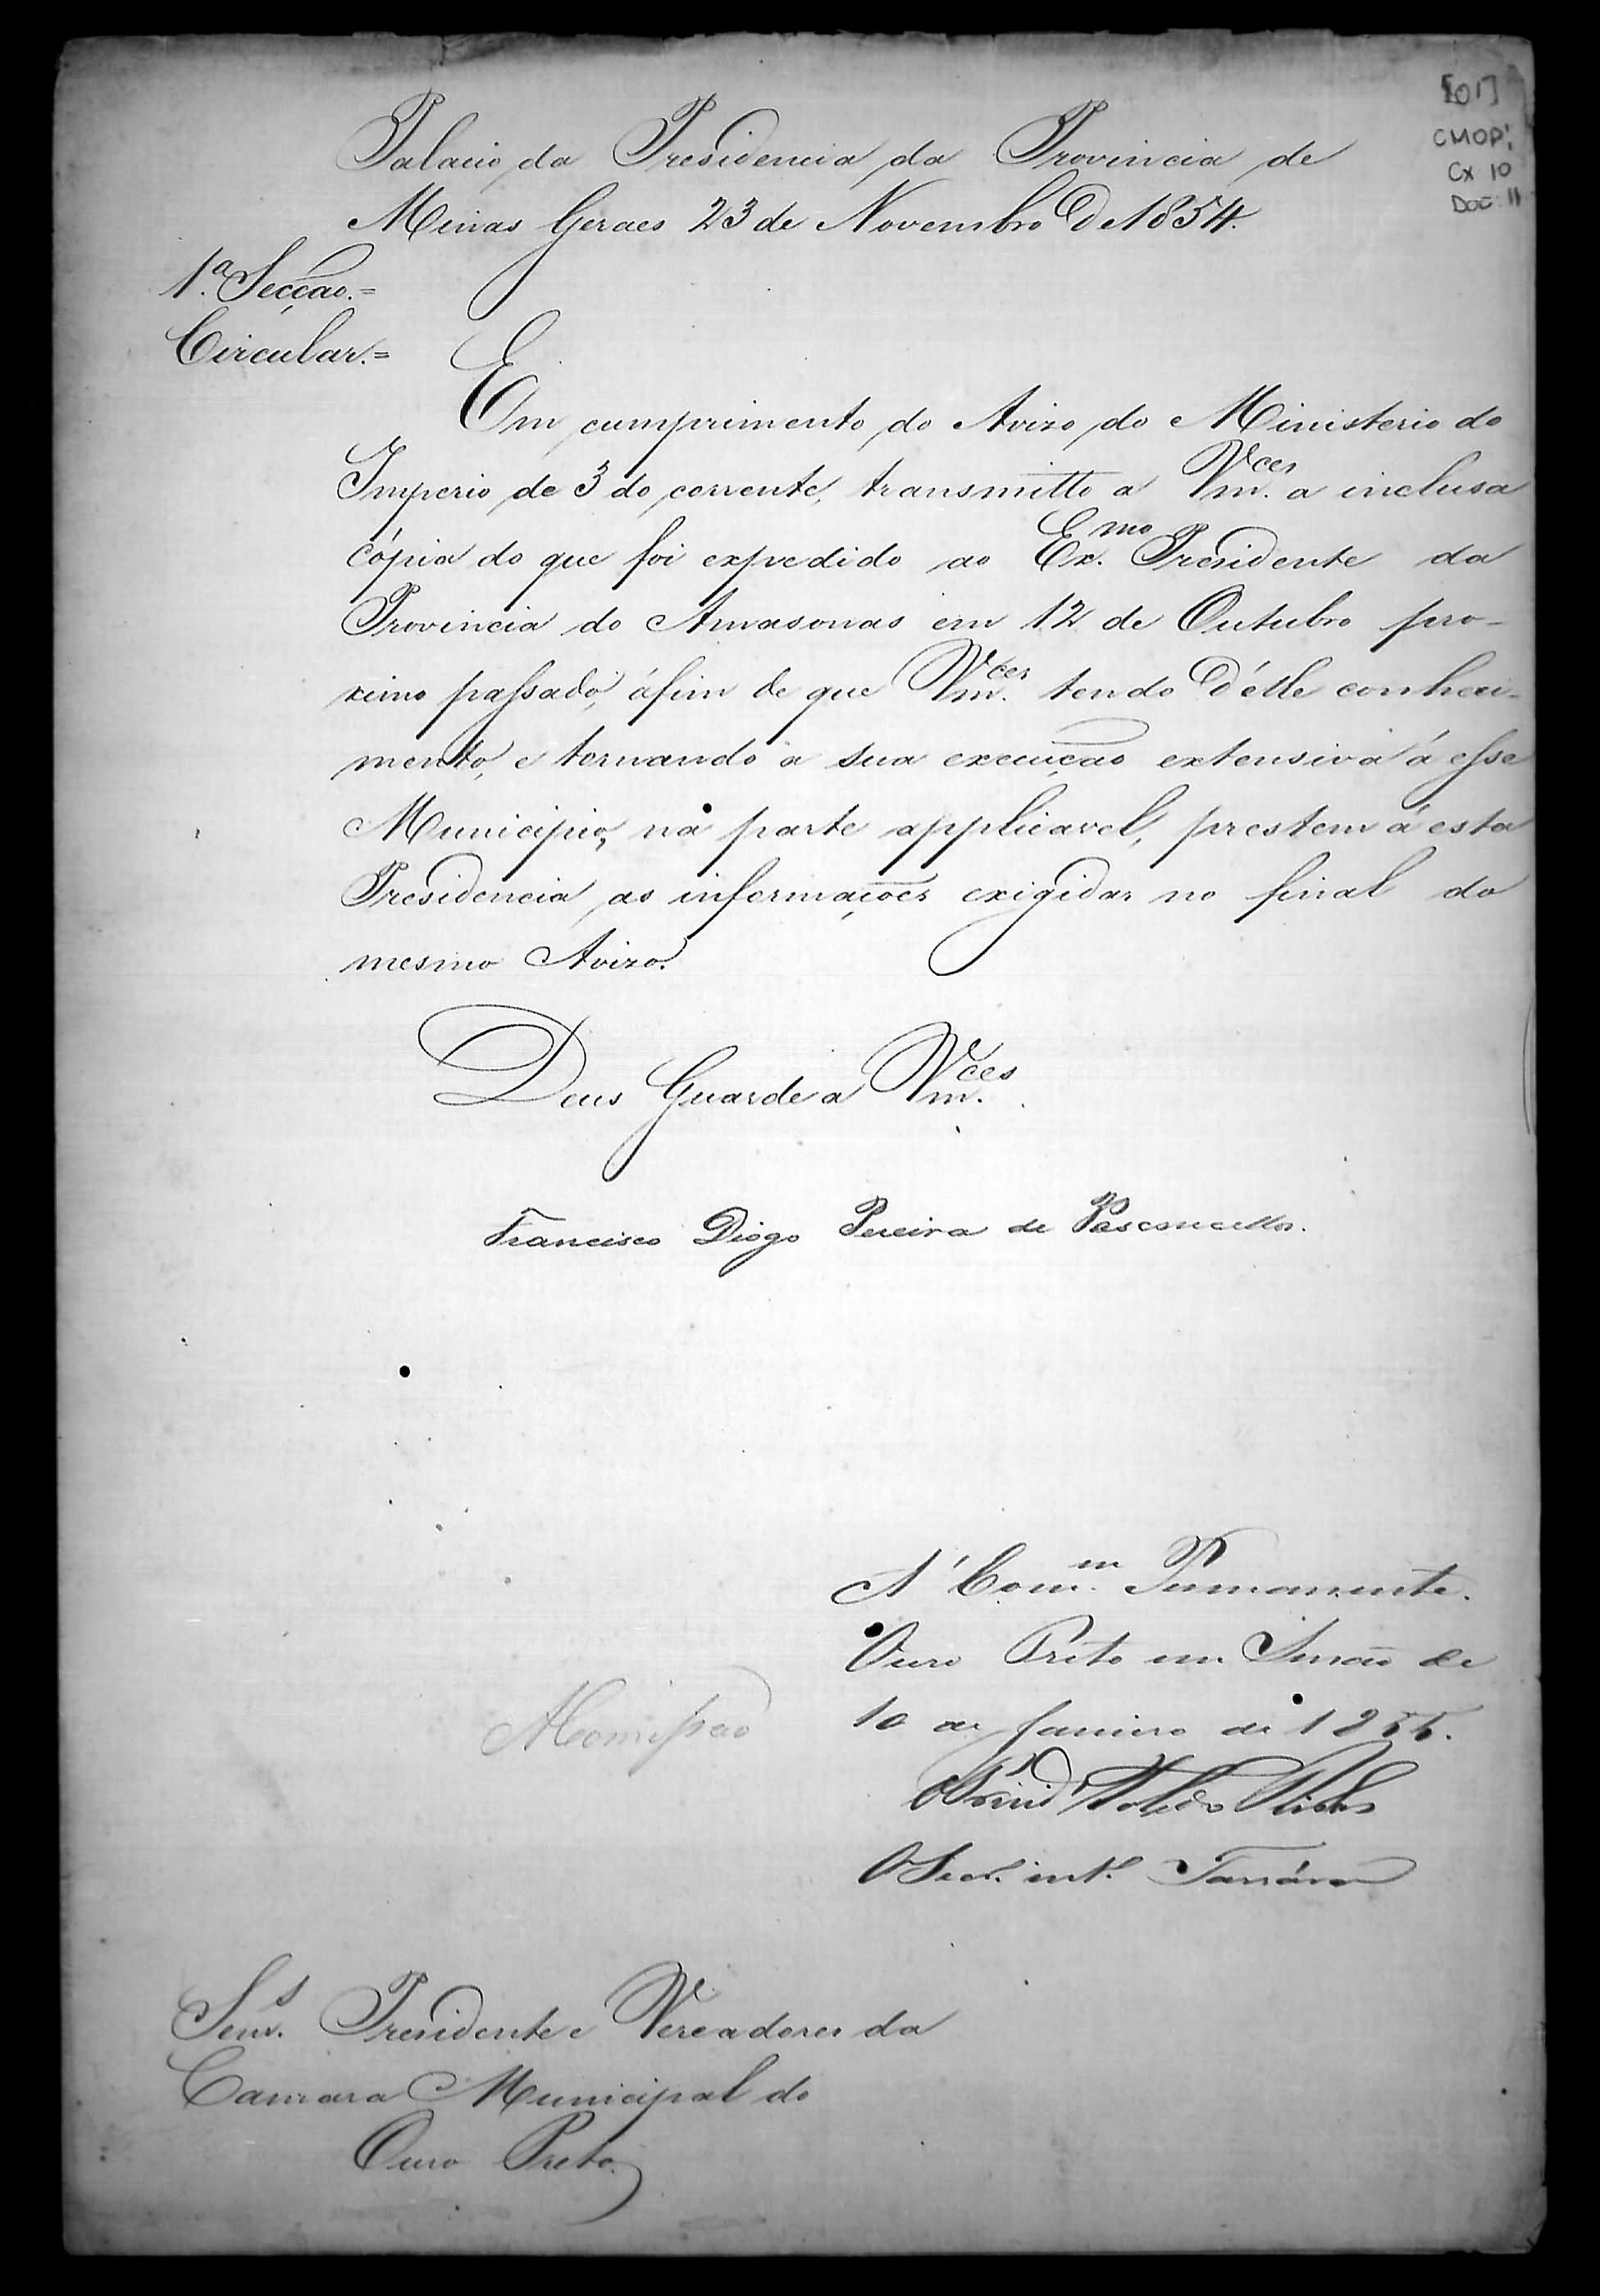 [01]
CMOP:
Cx 10
Doc: 11
Palacio da Presidencia da Provincia de
Minas Geraes 23 de Novembro de 1854.
1.ª Secção.=
Circular.=
Em cumprimento do Avizo do Ministerio do
Imperio de 3 do corrente, transmitto a Vm.ces a inclusa
cópia do que foi expedido ao Ex.mo Presidente da
Provincia do Amasonas em 12 de Outubro pro-
ximo passado, áfim de que Vm.ces tendo d'élle conheci-
mento, e tornando a sua execução extensiva á esse
Municipio, na parte applicavel, prestem á esta
Presidencia as informações exigidas no final do
mesmo Avizo.
Deus Guarde a Vm.ces
Francisco Diogo Pereira de Vasconcellos.
A' Com.m Permanente.
Ouro Preto em Sessão de
10 de Janeiro de 1855.
Acomissão
O Secr. int.
Senr.s Presidente e Vereadores da
Camara Municipal do
Ouro Preto